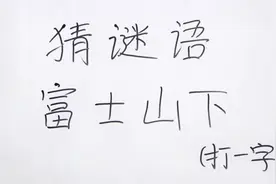 猜谜语
富士山下
(打一字